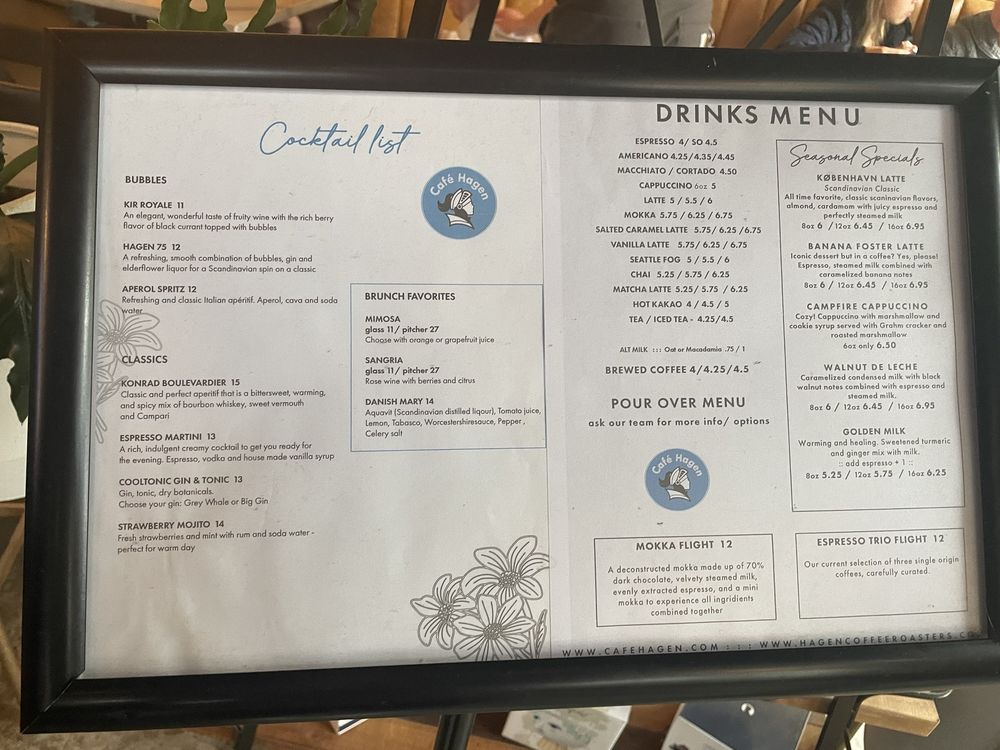 Cocktail list
Café Hagen
BUBBLES
KIR ROYALE 11
An elegant, wonderful taste of fruity wine with the rich berry
flavor of black currant topped with bubbles
HAGEN 75 12
A refreshing, smooth combination of bubbles, gin and
elderflower liquor for a Scandinavian spin on a classic
APEROL SPRITZ 12
Refreshing and classic Italian apéritif. Aperol, cava and soda
water
CLASSICS
KONRAD BOULEVARDIER 15
Classic and perfect aperitif that is a bittersweet, warming,
and spicy mix of bourbon whiskey, sweet vermouth
and Campari
ESPRESSO MARTINI 13
A rich, indulgent creamy cocktail to get you ready for
the evening. Espresso, vodka and house made vanilla syrup
COOLTONIC GIN & TONIC 13
Gin, tonic, dry botanicals.
Choose your gin: Grey Whale or Big Gin
STRAWBERRY MOJITO 14
Fresh strawberries and mint with rum and soda water -
perfect for warm day
BRUNCH FAVORITES
MIMOSA
glass 11/ pitcher 27
Choose with orange or grapefruit juice
SANGRIA
glass 11/ pitcher 27
Rose wine with berries and citrus
DANISH MARY 14
Aquavit (Scandinavian distilled liqour), Tomato juice,
Lemon, Tabasco, Worcestershiresauce, Pepper ,
Celery salt
DRINKS MENU
ESPRESSO 4/ SO 4.5
AMERICANO 4.25/4.35/4.45
MACCHIATO / CORTADO 4.50
CAPPUCCINO 6oz 5
LATTE 5 / 5.5 / 6
MOKKA 5.75 / 6.25 / 6.75
SALTED CARAMEL LATTE 5.75 /6.25 /6.75
VANILLA LATTE 5.75/ 6.25 / 6.75
SEATTLE FOG 5 / 5.5 / 6
CHAI 5.25 / 5.75 / 6.25
MATCHA LATTE 5.25/ 5.75 / 6.25
HOT KAKAO 4 / 4.5 / 5
TEA / ICED TEA - 4.25/4.5
ALT MILK ::: Oat or Macadamia .75 / 1
BREWED COFFEE 4/4.25/4.5
POUR OVER MENU
ask our team for more info/ options
Café Hagen
Seasonal Specials
KØBENHAVN LATTE
Scandinavian Classic
All time favorite, classic scaninavian flavors,
almond, cardamom with juicy espresso and
perfectly steamed milk
8oz 6 /12oz 6.45 / 16oz 6.95
BANANA FOSTER LATTE
Iconic dessert but in a coffee? Yes, please!
Espresso, steamed milk combined with
caramelized banana notes
8oz 6 / 12oz 6.45 / 16oz 6.95
CAMPFIRE CAPPUCCINO
Cozy! Cappuccino with marshmallow and
cookie syrup served with Grahm cracker and
roasted marshmallow
6oz only 6.50
WALNUT DE LECHE
Caramelized condensed milk with black
walnut notes combined with espresso and
steamed milk.
8oz 6 / 12oz 6.45 / 16oz 6.95
GOLDEN MILK
Warming and healing. Sweetened turmeric
and ginger mix with milk.
:: add espresso + 1 ::
8oz 5.25 / 12oz 5.75 / 16oz 6.25
MOKKA FLIGHT 12
A deconstructed mokka made up of 70%
dark chocolate, velvety steamed milk,
evenly extracted espresso, and a mini
mokka to experience all ingridients
combined together
ESPRESSO TRIO FLIGHT 12
Our current selection of three single origin
coffees, carefully curated.
WWW.CAFEHAGEN.COM ::: WWW.HAGENCOFFEEROASTERS.CO